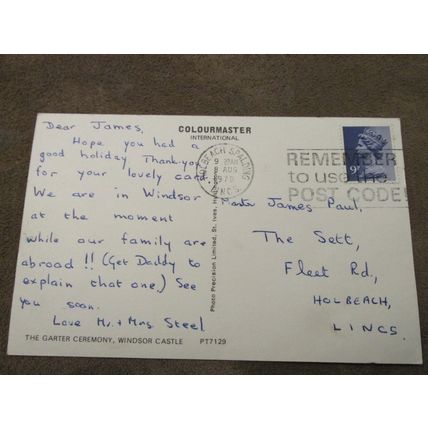 Dear James,
Hope you had a
good holiday Thank-you
for your lovely card
We are in Windsor
at the moment
while our family are
abroad!! (Get Daddy to
explain that one.) See
you soon.
Love Mr. + Mrs. Steel
THE GARTER CEREMONY, WINDSOR CASTLE PT7129
COLOURMASTER
INTERNATIONAL
Photo Precision Limited, St. Ives,
HOLBEACH SPALDING
9
8 AUG
1979
LINCS
REMEMBER
to use the
POST CODE
9
James Paul,
The Sett,
Fleet Rd.,
HOLBEACH,
LINCS.